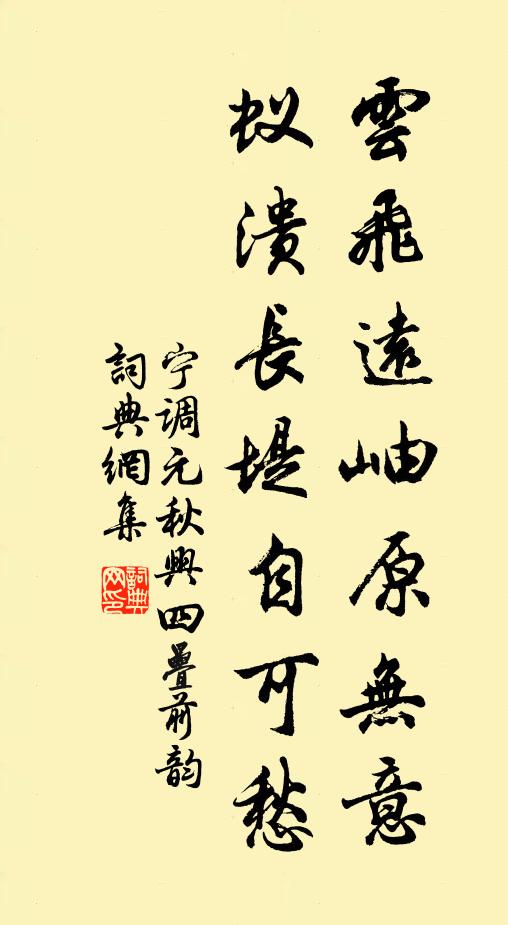 雲飛遠岫原無意
蚁潰長堤自可愁
宁調元秋興四疊前韵
詞典網集
詞典网印